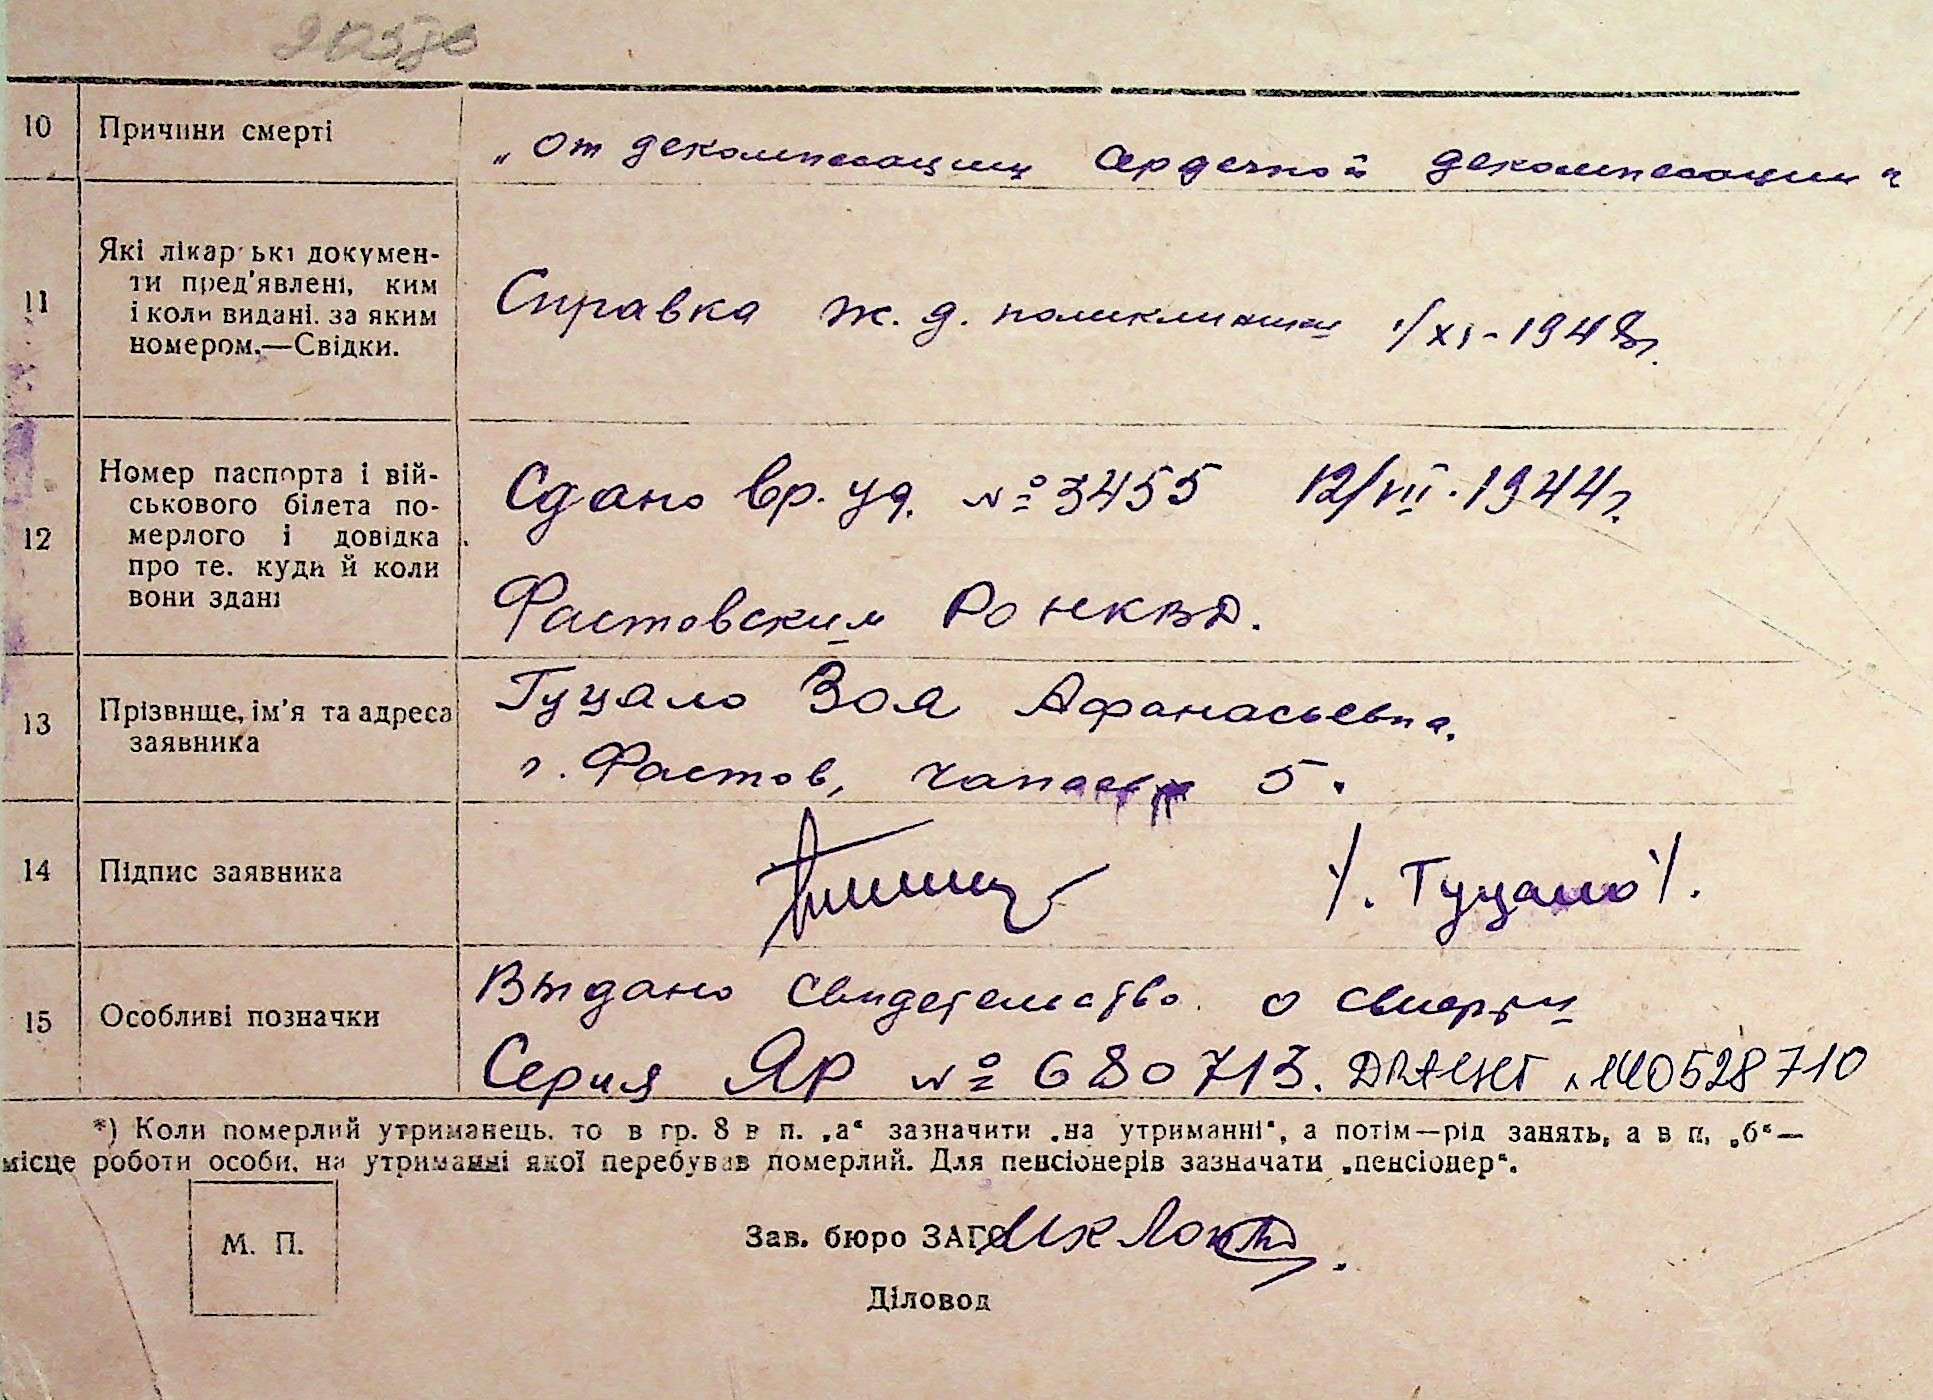 10 Причини смерті
„От декомпесации сердечной декомпесации"
11 Які лікарські докумен-
ти пред'явлені, ким
і коли видані. за яким
номером.—Свідки.
Справка ж. д. поликлиники 1/XI-1948г.
12 Номер паспорта і вій-
ськового білета по-
мерлого і довідка
про те. куди й коли
вони здані
Сдано вр. уд. №3455 12/VII-1944г.
Фастовским РОНКВД.
13 Прізвище, ім'я та адреса
заявника
Гуцало Зоя Афанасьевна.
г. Фастов, Чапаева 5.
14 Підпис заявника
/. Гуцало/.
15 Особливі позначки
Выдано свидетельство о смерти
Серия ЯР № 680713. 140528710
*) Коли померлий утриманець. то в гр. 8 в п. „а“ зазначити „на утриманні“, а потім—рід занять, а в п. „б“—
місце роботи особи, на утриманні якої перебував померлий. Для пенсіонерів зазначати „пенсіонер“.
М. П.
Зав. бюро ЗАГС
Діловод